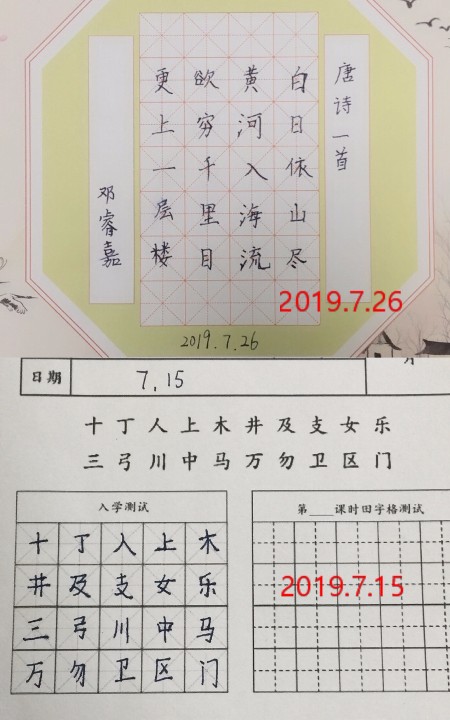 唐诗一首
白日依山尽
黄河入海流
欲穷千里目
更上一层楼
邓睿嘉
2019.7.26
2019.7.26
日期 7,15
十丁人上木井及支女乐
三弓川中马万勿卫区门
入学测试
十丁入上木
井及支女乐
三弓川中马
万勿卫区门
第____课时田字格测试
2019.7.15